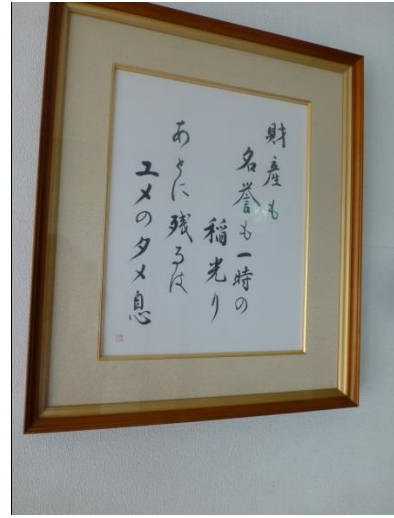 財産も
名誉も一時の
稲光り
あとに残るは
ユメのタメ息